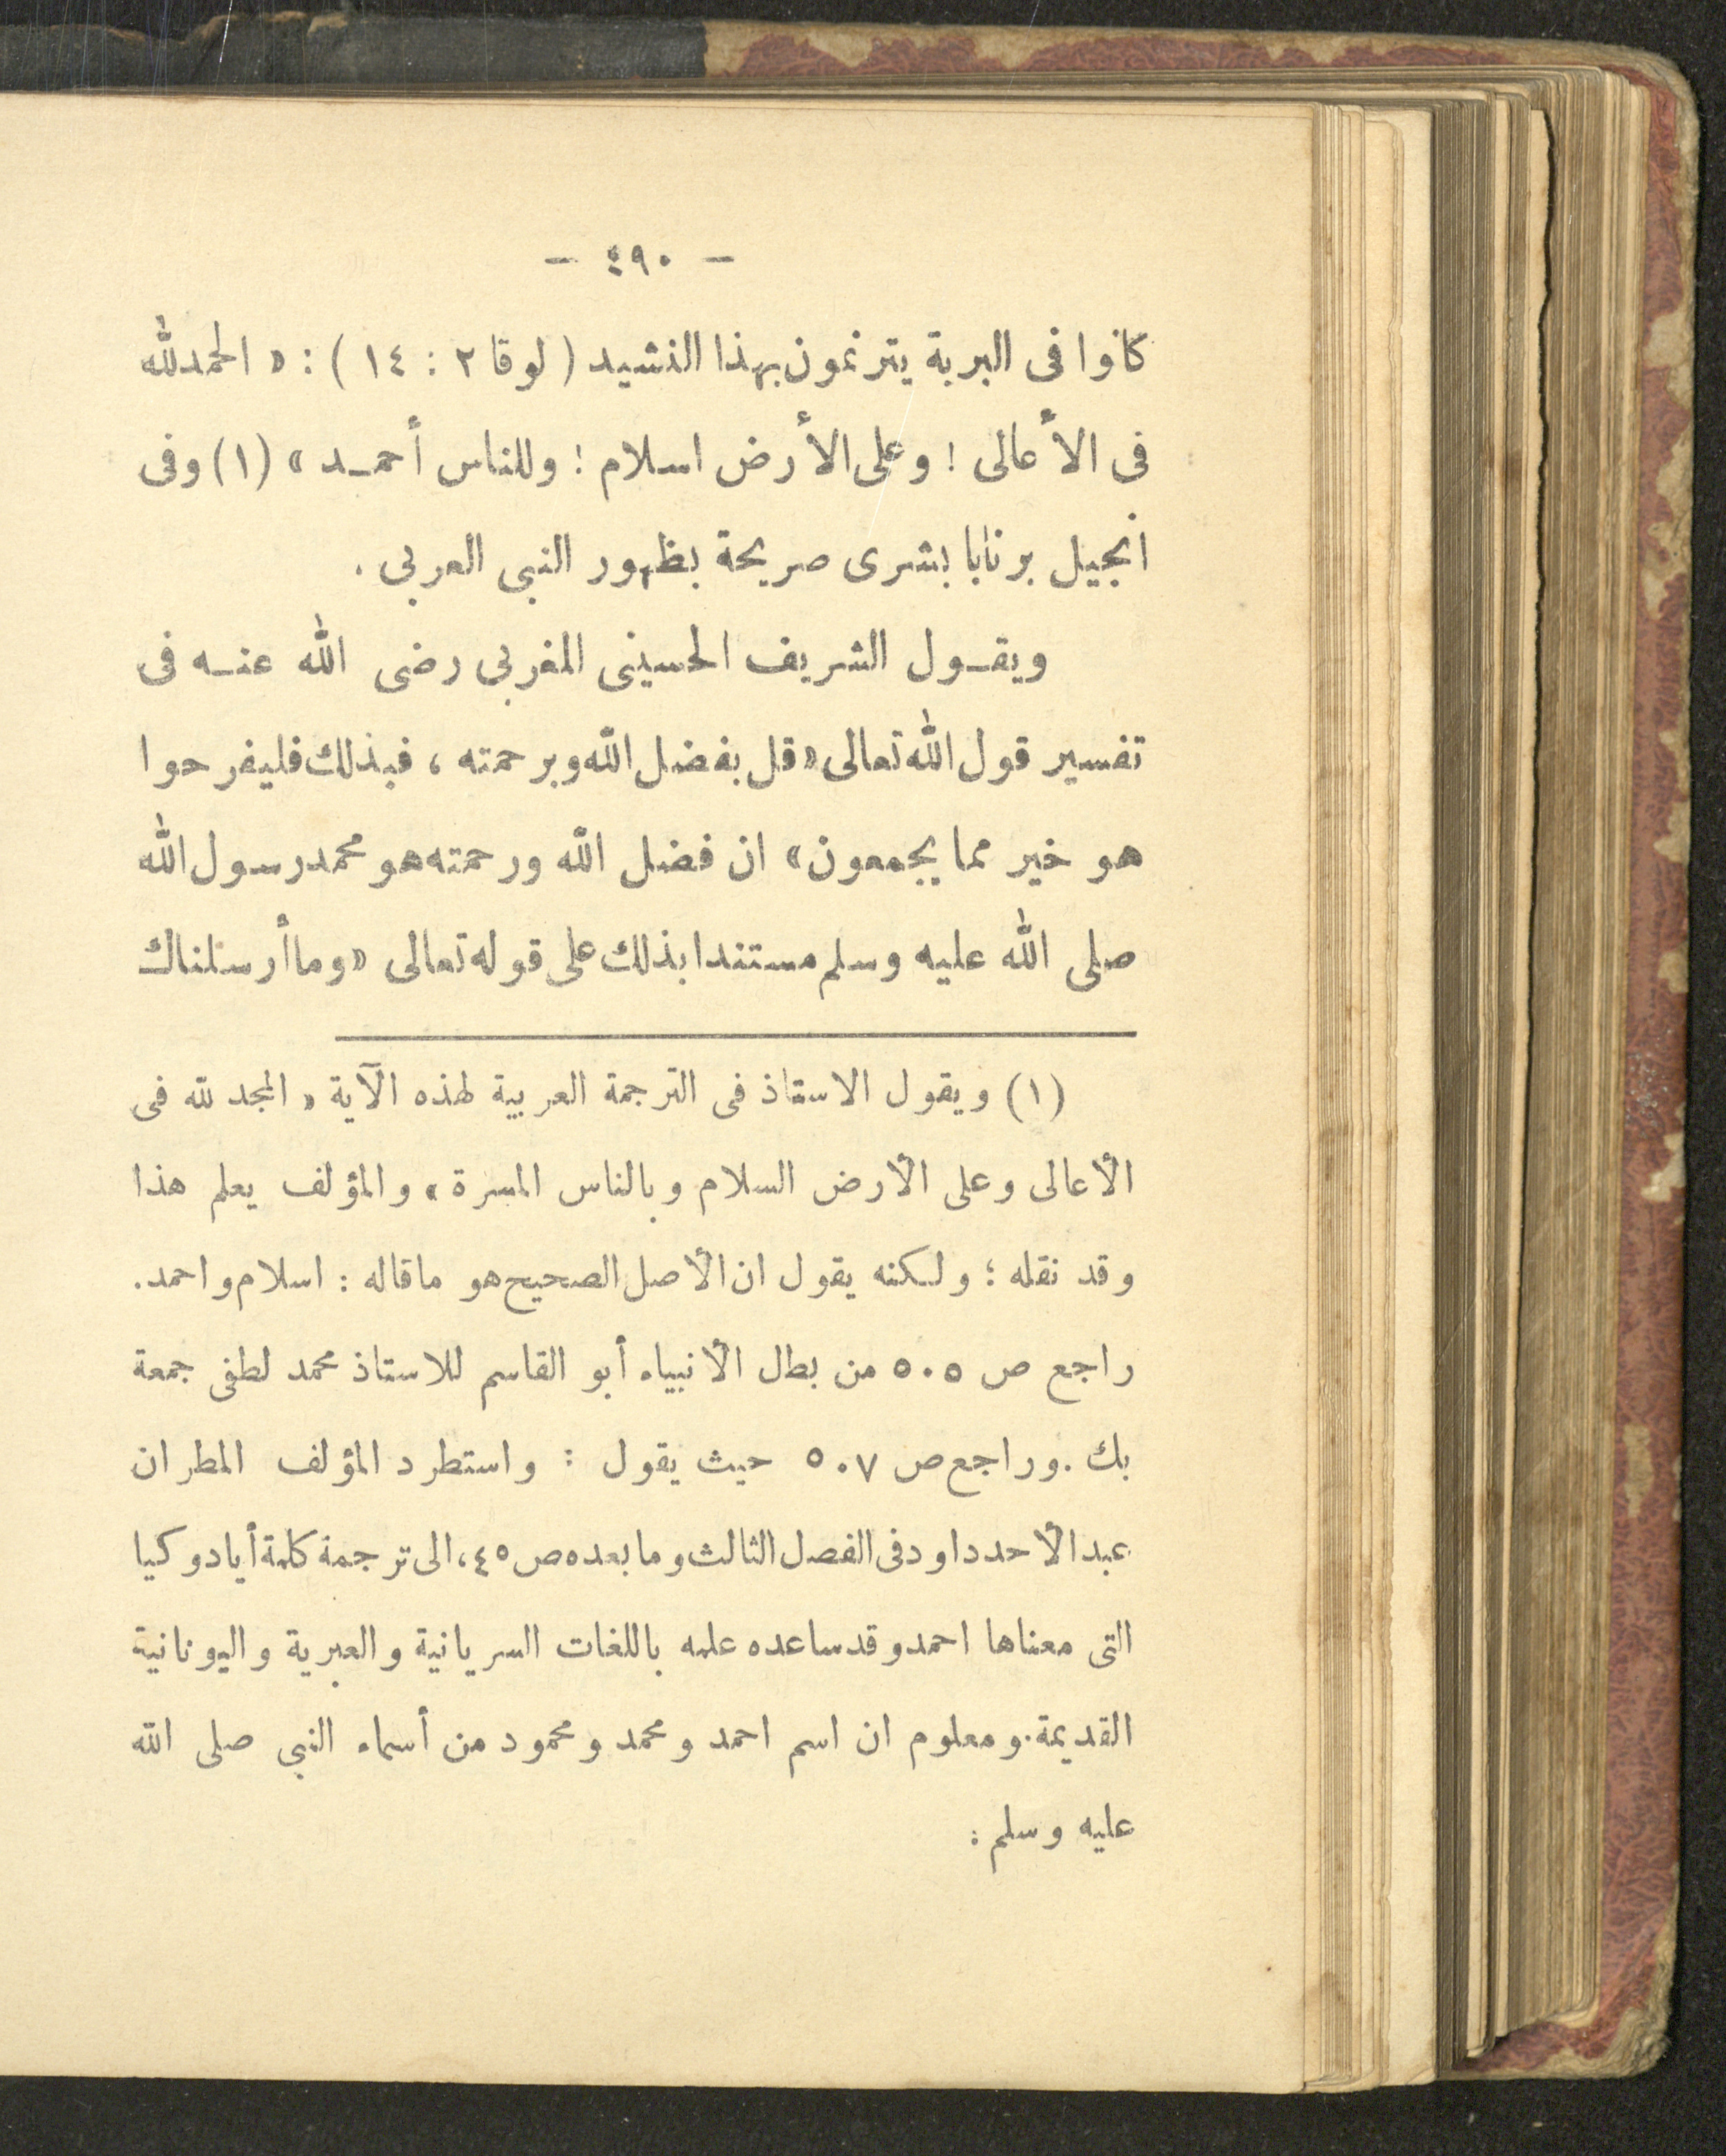 — ٤٩٠ —
كانوا فى البرية يترنمون بهذا النشيد ( لوقا ٢ : ١٤ ) : « الحمد لله
فى الأعالى ! وعلى الأرض اسلام ! وللناس أحمد » (١) وفى
انجيل برنابا بشرى صريحة بظهور النبى العربى .
ويقول الشريف الحسينى المغربى رضى الله عنه فى
تفسير قول الله تعالى « قل بفضل الله وبرحمته ، فبذلك فليفرحوا
هو خير مما يجمعون » ان فضل الله ورحمته هو محمد رسول الله
صلى الله عليه وسلم مستندا بذلك على قوله تعالى « وما أرسلناك
(١) ويقول الاستاذ فى الترجمة العربية لهذه الآية « المجد لله فى
الأعالى وعلى الأرض السلام وبالناس المسرة » والمؤلف يعلم هذا
وقد نقله ؛ ولكنه يقول ان الأصل الصحيح هو ماقاله : اسلام واحمد .
راجع ص ٥٠٥ من بطل الأنبياء أبو القاسم للاستاذ محمد لطفى جمعة
بك . وراجع ص ٥٠٧ حيث يقول : واستطرد المؤلف المطران
عبد الأحد داود فى الفصل الثالث وما بعده ص ٤٥ ، الى ترجمة كلمة أيادوكيا
التى معناها احمد وقد ساعده علمه باللغات السريانية والعبرية واليونانية
القديمة . ومعلوم ان اسم احمد ومحمد ومحمود من أسماء النبى صلى الله
عليه وسلم :